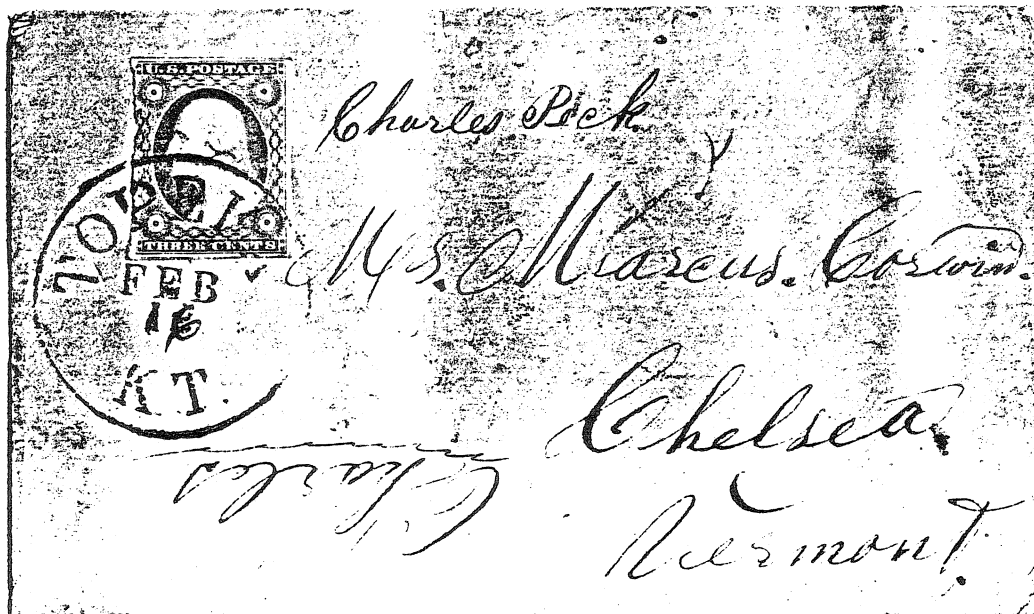 U.S. POSTAGE
THREE CENTS
FEB
16
K T.
Charles Peck
Mrs. Marcus. Corwin.
Chelsea.
Vermont.
Charles